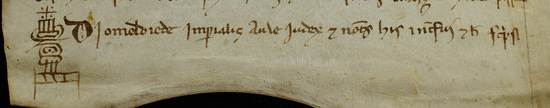 Diomeldiede Imperialis Aule Iudex & not(us) his int(er)fui & h(ec) sc(ri)psi